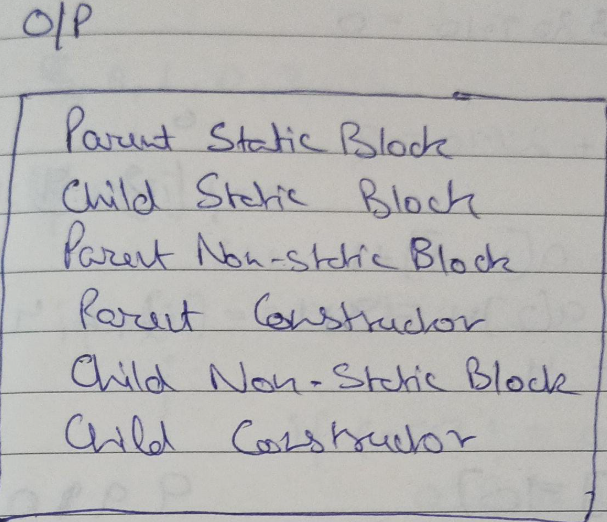 O/P
Parent Static Block
Child Static Block
Parent Non-static Block
Parent Constructor
Child Non-Static Block
Child Constructor